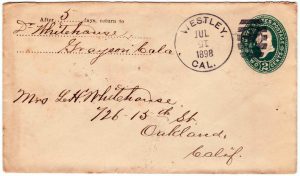 After 5 days, return to
Dr Whitehouse,
Grayson Cala.
WESTLEY,
JUL
1898
CAL.
2
Mrs L.H. Whitehouse
726-15th St
Oakland,
Calif.